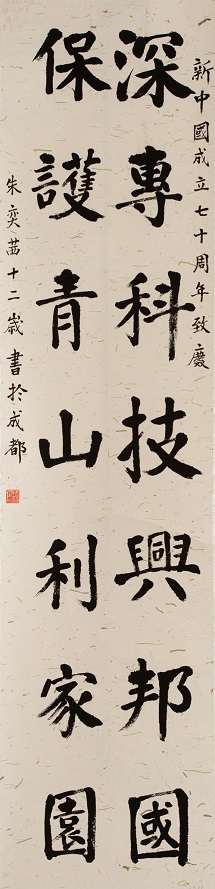 新中國成立七十周年致慶
深專科技興邦國
保護青山利家園
朱奕茜十二歲書於成都